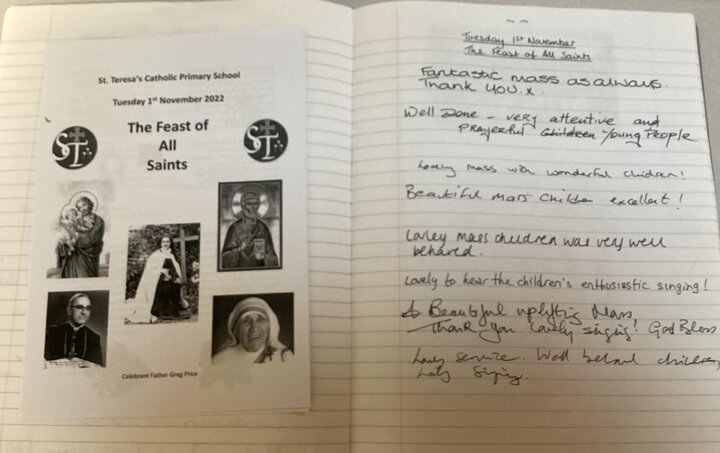 St. Teresa's Catholic Primary School
Tuesday 1st November 2022
The Feast of
All
Saints
ST
ST
Celebrant Father Greg Price
Tuesday 1st November
The Feast of All Saints
Fantastic mass as always.
Thank you.x.
Well Done - very attentive and
prayerful Children Young People
Lovely mass with wonderful children!
Beautiful mass children excellent!
Lovley mass children was very well
behaved.
Lovely to hear the children's enthusiastic singing!
A Beautiful uplifting Mass
Thank you lovely singing! God Bless
Lovely service. Well behaved children
Lovely Singing.